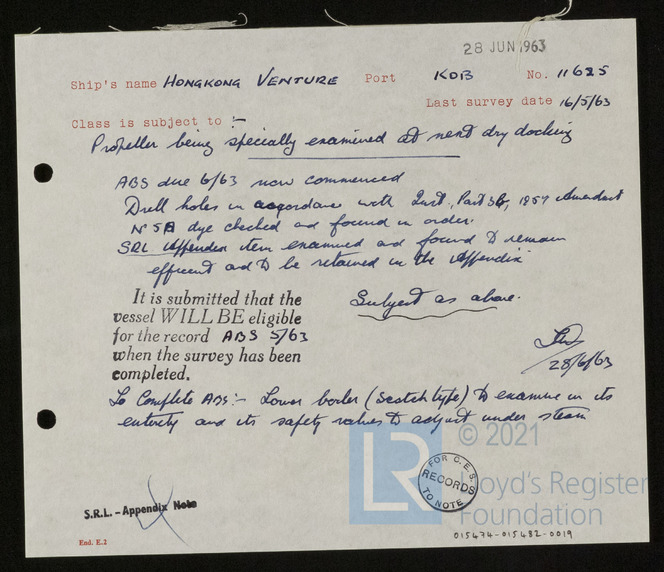 28 JUN 1963
Ship's name HONGKONG VENTURE Port KOB No. 11625
Last survey date 16/5/63
Class is subject to :-
Propeller being specially examined at next dry docking
ABS due 6/63 now commenced
Drill holes in accordance with Inst. Part 3b, 1957 Amendment
No 5A dye checked and found in order.
SRL Appendix item examined and found to remain
efficient and to be retained in the Appendix
It is submitted that the
vessel WILL BE eligible
for the record ABS 5/63
when the survey has been
completed.
Subject as above.
28/6/63
To Complete ABS:- Lower boiler (Scotch type) to examine in its
entirety and its safety valves to adjust under steam
LR
© 2021
Lloyd's Register
Foundation
FOR C.E.S.
RECORDS
TO NOTE
S.R.L. - Appendix Note
End. E.2
015474-015482-0019